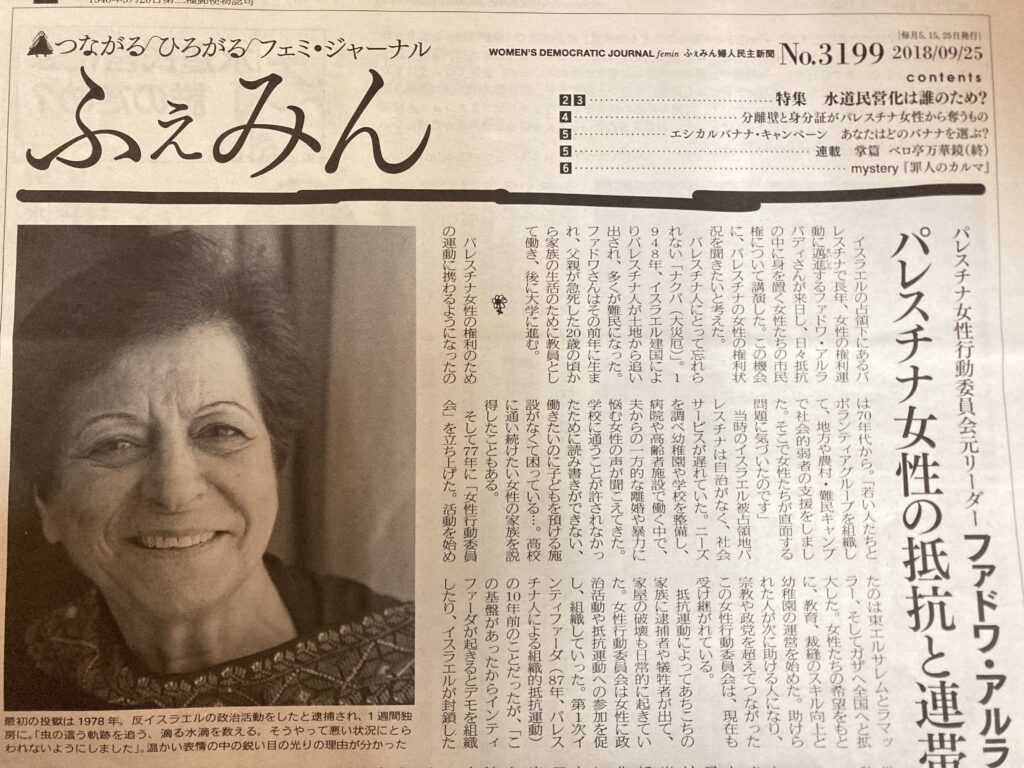 1946年5月20日第三種郵便物認可
つながる／ひろがる／フェミ・ジャーナル
ふぇみん
WOMEN'S DEMOCRATIC JOURNAL femin ふぇみん婦人民主新聞 No.3199
毎月5,15,25日発行
2018/09/25
contents
2 3 特集 水道民営化は誰のため?
4 分離壁と身分証がパレスチナ女性から奪うもの
5 エシカルバナナ・キャンペーン あなたはどのバナナを選ぶ?
5 連載 掌篇 ベロ亭万華鏡(終)
6 mystery『罪人のカルマ』
パレスチナ女性行動委員会元リーダー ファドワ・アルラ
パレスチナ女性の抵抗と連帯
イスラエルの占領下にあるパ
レスチナで長年、女性の権利運
動に邁進するファドワ・アルラ
バディさんが来日し、日々抵抗
の中に身を置く女性たちの市民
権について講演した。この機会
に、パレスチナの女性の権利状
況を聞きたいと考えた。
パレスチナ人にとって忘れら
れない「ナクバ(大災厄)」。1
948年、イスラエル建国によ
りパレスチナ人が土地から追い
出され、多くが難民になった。
ファドワさんはその前年に生ま
れ、父親が急死した20歳の頃か
ら家族の生活のために教員とし
て働き、後に大学に進む。
パレスチナ女性の権利のため
の運動に携わるようになったの
は70年代から。「若い人たちと
ボランティアグループを組織し
て、地方や農村・難民キャンプ
で社会的弱者の支援をしまし
た。そこで女性たちが直面する
問題に気づいたのです」
当時のイスラエル被占領地パ
レスチナは自治がなく、社会
サービスが遅れていた。ニーズ
を調べ幼稚園や学校を整備し、
病院や高齢者施設で働く中で、
夫からの一方的な離婚や暴力に
悩む女性の声が聞こえてきた。
学校に通うことが許されなかっ
たために読み書きができない、
働きたいのに子どもを預ける施
設がなくて困っている…。高校
に通い続けたい女性の家族を説
得したこともある。
そして77年に「女性行動委員
会」を立ち上げた。活動を始め
たのは東エルサレムとラマッ
ラー、そしてガザへ全国へと拡
大した。女性たちの希望をもと
に、教育、裁縫のスキル向上と
幼稚園の運営を始めた。助けら
れた人が次に助ける人になり、
宗教や政党を超えてつながった
この女性行動委員会は、現在も
受け継がれている。
抵抗運動によってあちこちの
家族に逮捕者や犠牲者が出て、
家屋の破壊も日常的に起きてい
た。女性行動委員会は女性に政
治活動や抵抗運動への参加を促
し、組織していった。第1次イ
ンティファーダ(87年、パレス
チナ人による組織的抵抗運動)
の10年前のことだったが、「こ
の基盤があったからインティ
ファーダが起きるとデモを組織
したり、イスラエルが封鎖した
最初の投獄は1978年。反イスラエルの政治活動をしたと逮捕され、1週間独
房に。「虫の這う軌跡を追う、滴る水滴を数える。そうやって悪い状況にとら
われないようにしました」。温かい表情の中の鋭い目の光りの理由が分かった